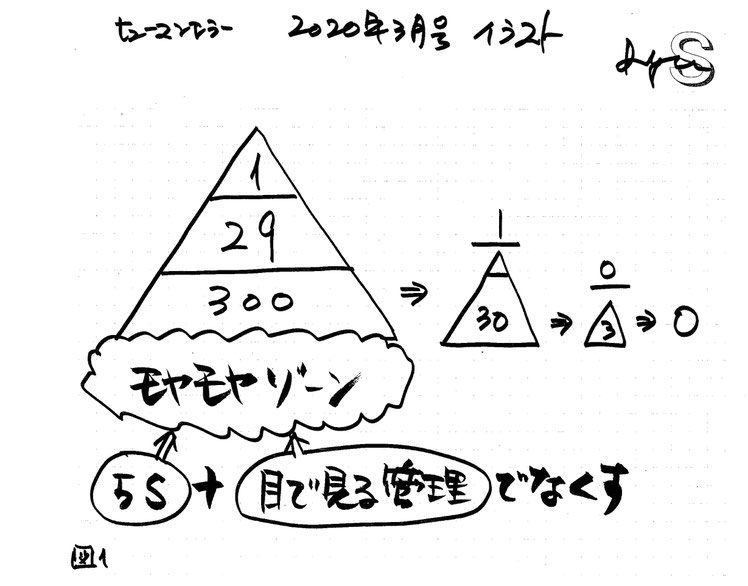 ヒューマンエラー 2020年3月号 イラスト
S
1
29
300
⇒
1
30
⇒
0
3
⇒ 0
モヤモヤゾーン
5S + 目で見る管理 でなくす
図1